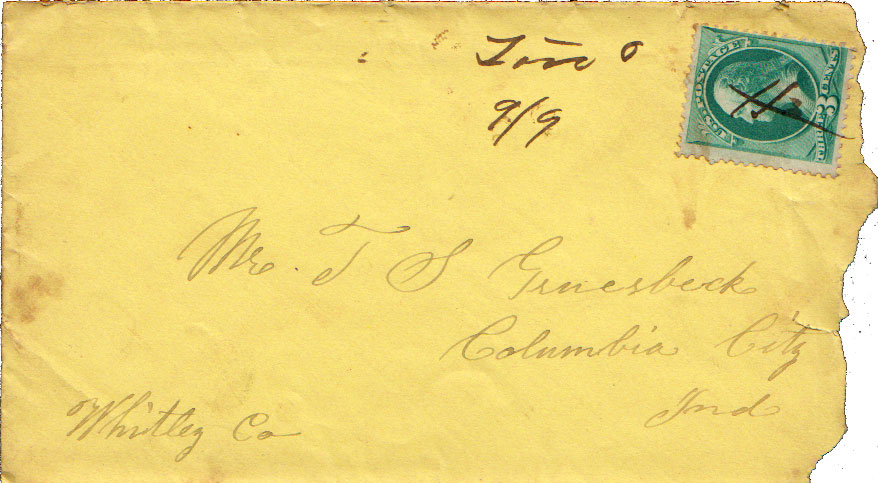 9/9
U.S. POSTAGE
3
THREE CENTS
Mr. T S Gruesbeck
Columbia City
Ind
Whitley Co